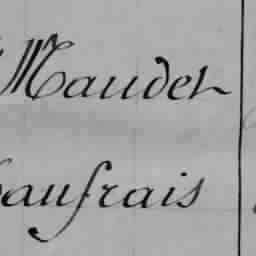 Maudet
aufrais